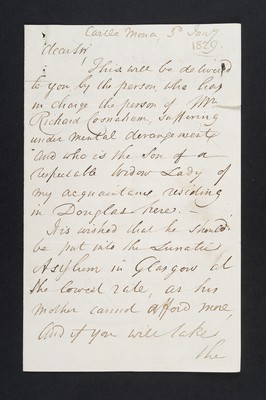 Castle Mona, 3d Jany
1829.
Dear Sir,
This will be delivered
to you by the person, who has
in charge the person of Mr.
Richard Cosnahan, suffering
under mental derangement
and who is the Son of a
respectable Widow Lady of
my acquaintance residing
in Douglas here. —
It is wished that he should
be put into the Lunatic
Asylum in Glasgow at
the lowest rate, as his
Mother cannot afford more,
And if you will take
the